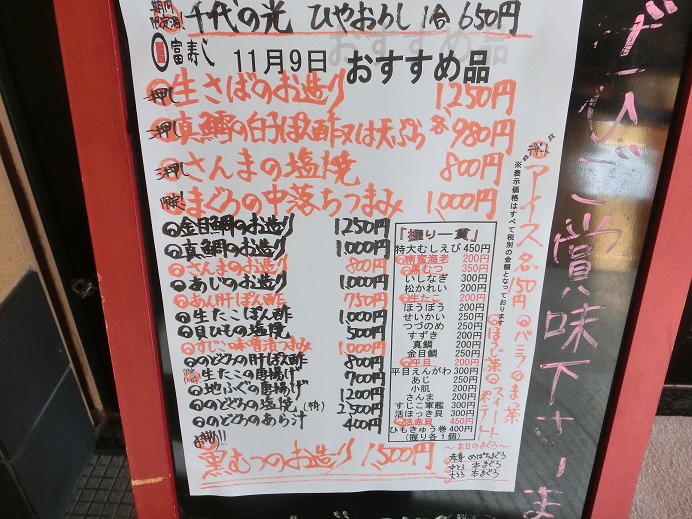 期間限定酒! 千代の光 ひやおろし 1合 650円
富寿し 11月9日 おすすめ品
一押し 生さばのお造り 1,250円
二押し 真鱈の白子ぽん酢又は天ぷら 各980円
三押し さんまの塩焼 800円
まぐろの中落ちつまみ 1,000円
金目鯛のお造り 1,250円
真鯛のお造り 1,000円
さんまのお造り 800円
あじのお造り 1,000円
あん肝ぽん酢 750円
生たこぽん酢 1,000円
貝ひもの塩焼 500円
すじこ味噌漬つまみ 1,000円
のどぐろの肝ぽん酢 800円
生たこの唐揚げ 700円
地ふぐの唐揚げ 1,200円
のどぐろの塩焼(特) 2,500円
のどぐろのあら汁 400円
黒むつのお造り 1,500円
「握り一貫」
特大むしえび 450円
南蛮海老 200円
黒むつ 350円
いしなぎ 300円
松かれい 200円
生たこ 200円
ほうぼう 200円
せいかい 250円
つづのめ 250円
すずき 200円
真鯛 200円
金目鯛 250円
平目 200円
平目えんがわ 300円
あじ 250円
小肌 200円
さんま 200円
すじこ軍艦 300円
活ほっき貝 300円
活赤貝 450円
ひもきゅう巻 400円
(握り各1個)
〜本日のまぐろ〜
赤身 めばちまぐろ
中とろ 本まぐろ
大とろ 本まぐろ
※表示価格はすべて税別の金額となっております
デザート アイス 各150円
バニラ ま茶
ほうじ茶 スイートポテト
ぜひご賞味下さいま